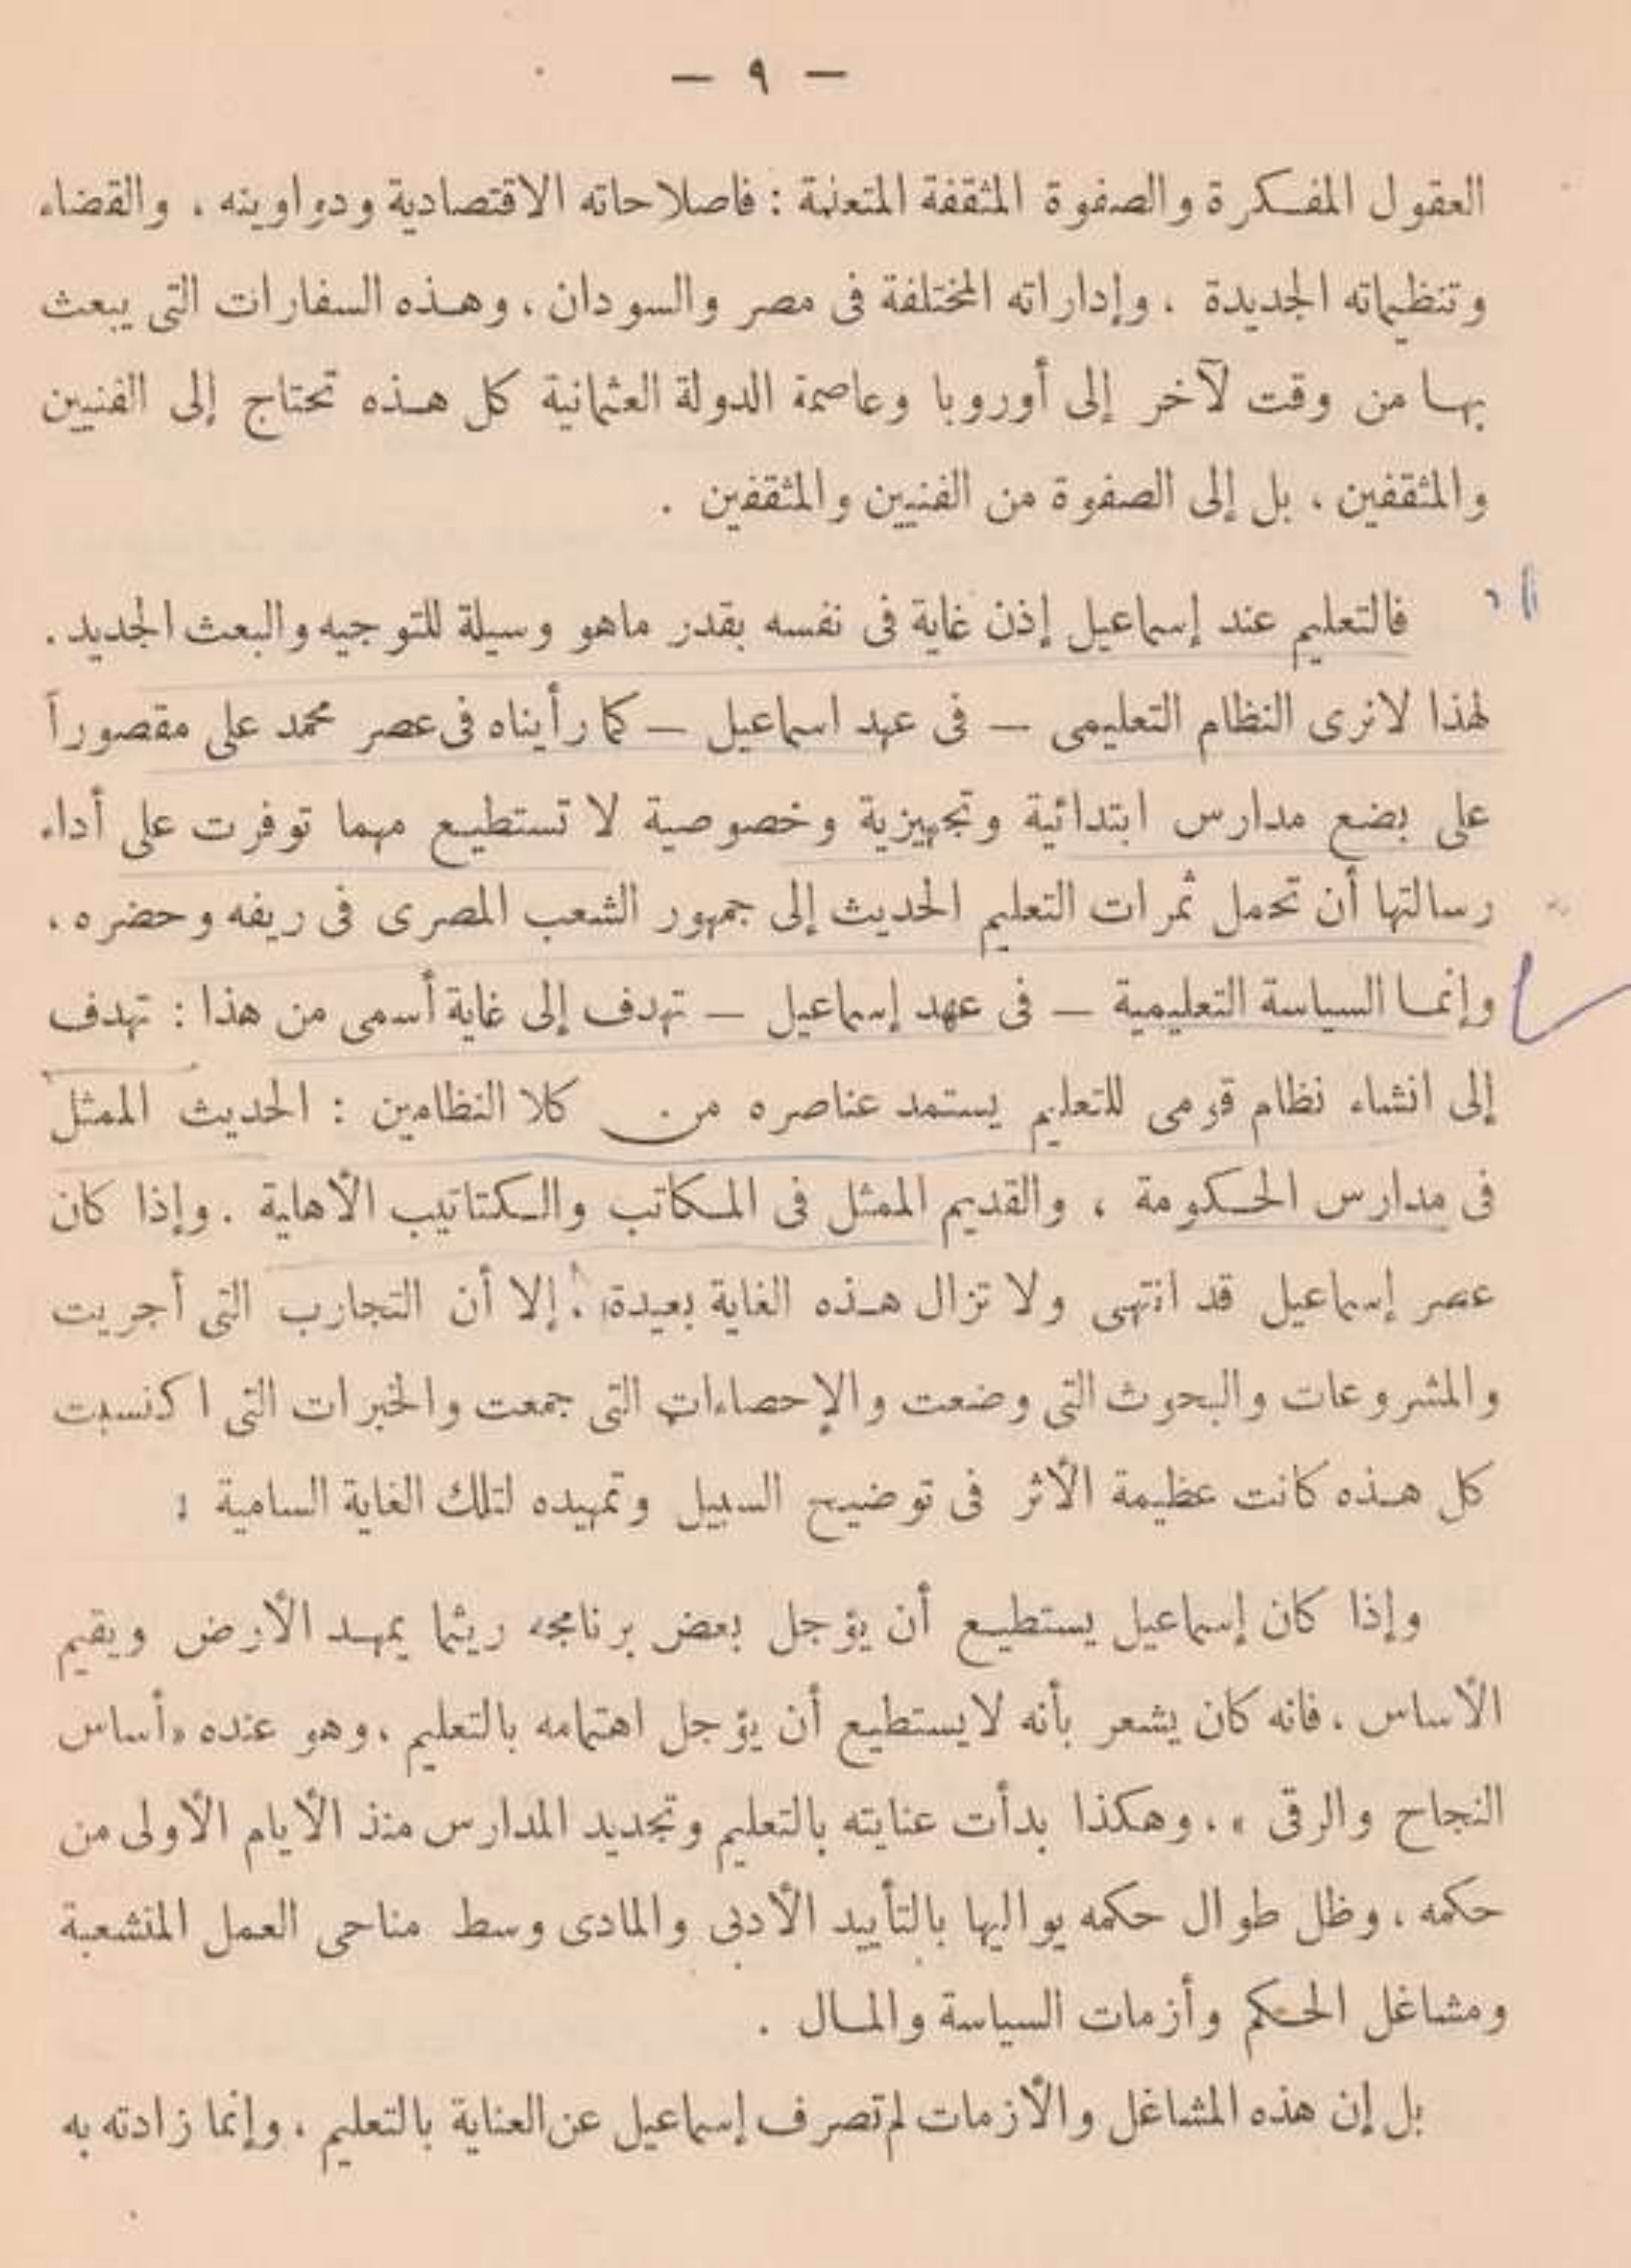 — ٩ —
العقول المفكرة والصفوة المثقفة المتعلمة : فاصلاحاته الاقتصادية ودواوينه ، والقضاء
وتنظيماته الجديدة ، وإداراته المختلفة فى مصر والسودان ، وهذه السفارات التى يبعث
بها من وقت لآخر إلى أوروبا وعاصمة الدولة العثمانية كل هذه تحتاج إلى الفنيين
والمثقفين ، بل إلى الصفوة من الفنيين والمثقفين .
فالتعليم عند إسماعيل إذن غاية فى نفسه بقدر ماهو وسيلة للتوجيه والبعث الجديد .
لهذا لانرى النظام التعليمى — فى عهد اسماعيل — كما رأيناه فى عصر محمد على مقصوراً
على بضع مدارس ابتدائية وتجهيزية وخصوصية لا تستطيع مهما توفرت على أداء
رسالتها أن تحمل ثمرات التعليم الحديث إلى جمهور الشعب المصرى فى ريفه وحضره ،
وإنما السياسة التعليمية — فى عهد إسماعيل — تهدف إلى غاية أسمى من هذا : تهدف
إلى انشاء نظام قومى للتعليم يستمد عناصره من كلا النظامين : الحديث الممثل
فى مدارس الحكومة ، والقديم الممثل فى المكاتب والكتاتيب الأهلية . وإذا كان
عصر إسماعيل قد انتهى ولا تزال هذه الغاية بعيدة ، إلا أن التجارب التى أجريت
والمشروعات والبحوث التى وضعت والإحصاءات التى جمعت والخبرات التى اكتسبت
كل هذه كانت عظيمة الأثر فى توضيح السبيل وتمهيده لتلك الغاية السامية :
وإذا كان إسماعيل يستطيع أن يؤجل بعض برنامجه ريثما يمهد الأرض ويقيم
الأساس ، فانه كان يشعر بأنه لايستطيع أن يؤجل اهتمامه بالتعليم ، وهو عنده «أساس
النجاح والرقى » ، وهكذا بدأت عنايته بالتعليم وتجديد المدارس منذ الأيام الأولى من
حكمه ، وظل طوال حكمه يواليها بالتأييد الأدبى والمادى وسط مناحى العمل المتشعبة
ومشاغل الحكم وأزمات السياسة والمال .
بل إن هذه المشاغل والأزمات لم تصرف إسماعيل عن العناية بالتعليم ، وإنما زادته به